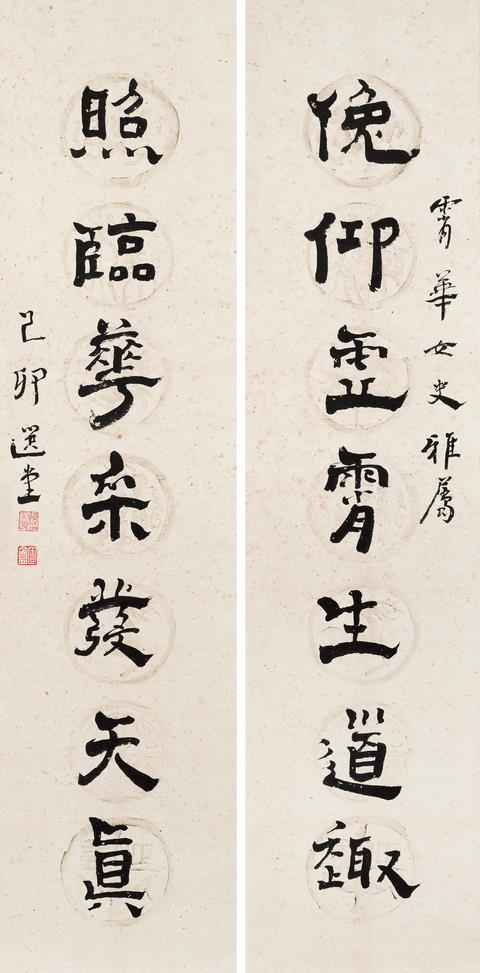 霄華女史雅屬
俛仰霊霄生道趣
照臨華采發天真
己卯選堂